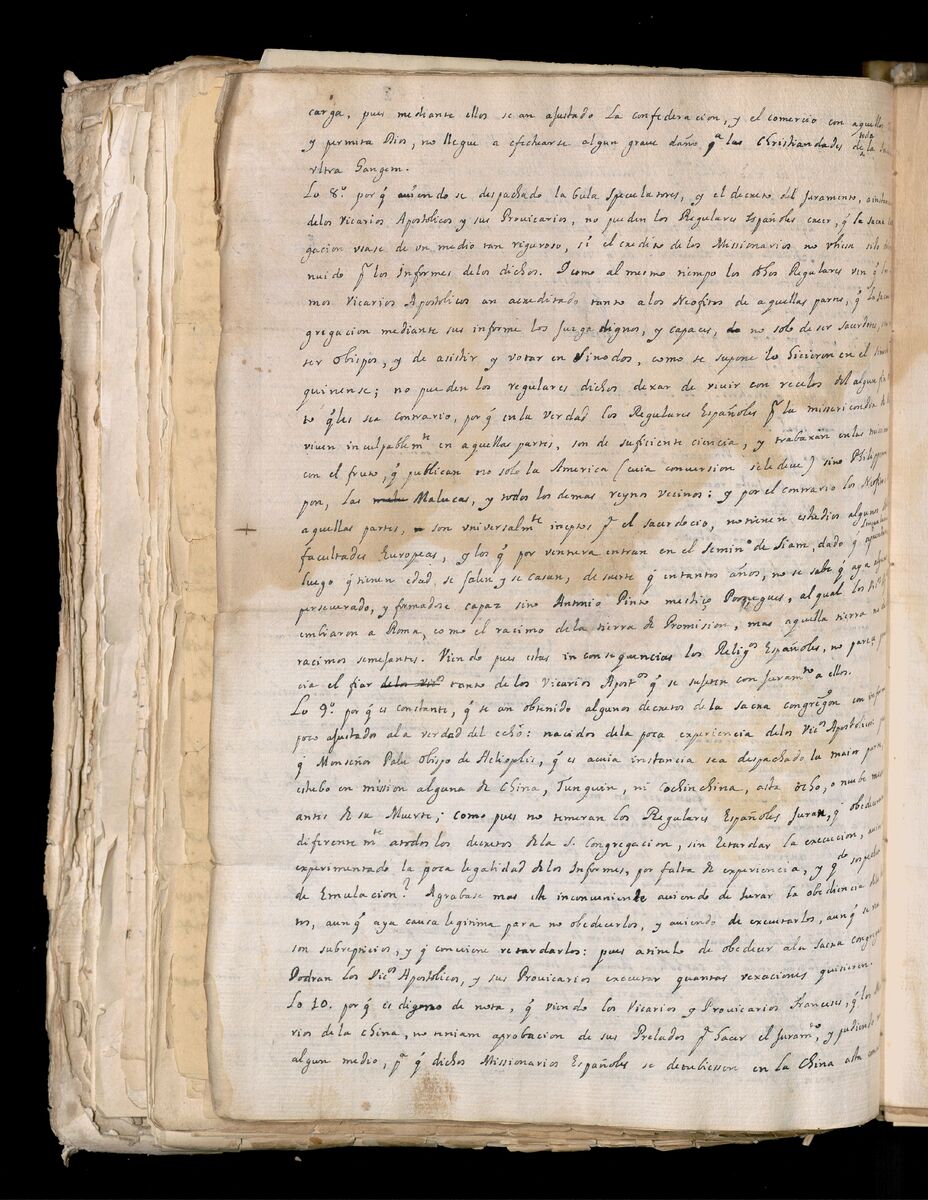 carga, pues mediante ellos se an ajustado la confederacion, y el comercio con aquellos
y permita Dios, no llegue a efectuarse algun grave daño pª las Christiandades de toda la
vltra Gangem.
Lo 8º. por q̃ auiendo se despachado la bula Speculatores, y el decreto del Juramento, a
delos Vicarios Apostolicos y sus Prouicarios, no pueden los Regulares Españoles creer, q̃ la sacra
gacion vsase de vn medio tan riguroso, si el credito de los Missionarios no vbiera sido
nuido pr los informes delos dichos. I como al mesmo tiempo los dhos Regulares ven q̃
mos Vicarios Apostolicos an acreditado tanto alos Neofitos de aquellas partes, q̃ la sacra
gregacion mediante sus informe los juzga dignos, y capaces, no solo de ser sacerdotes,
ser obispos, y de asistir y votar en Sinodos, como se supone lo hicieron en el
quinense; no pueden los regulares dichos dexar de vivir con recelos del algun
to q̃ les sea contrario, por q̃ en la verdad los Regulares Españoles pr la misericordia de
viuen inculpablemte en aquellas partes, son de suficiente ciencia, y trabaxan en las
con el fruto, q̃ publican no solo la America (cuia conuersion sele deue) sino Philippinas
pon, las Malucas, y todos los demas reynos vecinos: y por el contrario los Neofitos
aquellas partes, son vniuersalmte ineptos pr el sacerdocio, no tienen estudios algunos
facultades Europeas, y los q̃ por ventura entran en el Semino de Siam, dado q̃
luego q̃ tienen edad, se salen y se casan, de suerte q̃ en tantos años, no se sabe q̃ aya
perseuerado, y formadose capaz sino Antonio Pinto mestiço Portugues, al qual los
embiaron a Roma, como el racimo dela tierra de Promision, mas aquella tierra no
racimos semejantes. Viendo pues estas inconsequencias los Religos Españoles, no parece
cia el fiar tanto de los Vicarios Apostos q̃ se sujeten con Juramto a ellos.
Lo 9º. por q̃ es constante, q̃ se an obtenido algunos decretos dela sacra congregon con
poco ajustados ala verdad del echo: nacidos dela poca experiencia delos Vicos Apostolicos
q̃ Monseñor Palu obispo de Heliopolis, q̃ es a cuia instancia sea despachado la maior parte,
estubo en mission alguna de China, Tunquin, ni Cochinchina, asta ocho, o nuebe
antes de su Muerte; como pues no temeran los Regulares Españoles Jurar, q̃ obedeceran
diferentemte a todos los decretos dela S. Congregacion, sin retardar la execucion,
experimentado la poca legalidad delos Informes, por falta de experiencia, y qdo
de Emulacion? Agrabase mas este inconueniente auiendo de Jurar la obediencia
tos, aunq̃ aya causa legitima para no obedecerlos, y auiendo de executarlos, aunq̃
son subrepticios, y q̃ conuiene retardarlos: pues atitulo de obedecer ala sacra congregon
Podran los Vicos Apostolicos, y sus Prouicarios executar quantas vexaciones quisieren.
Lo 10. por q̃ es digno de nota, q̃ viendo los Vicarios y Prouicarios Franceses, q̃ los
rios de la China, no tenian aprobacion de sus Prelados pr hacer el Juramto, y pudiendo
algun medio, pª q̃ dichos Missionarios Españoles se detubiessen en la China asta